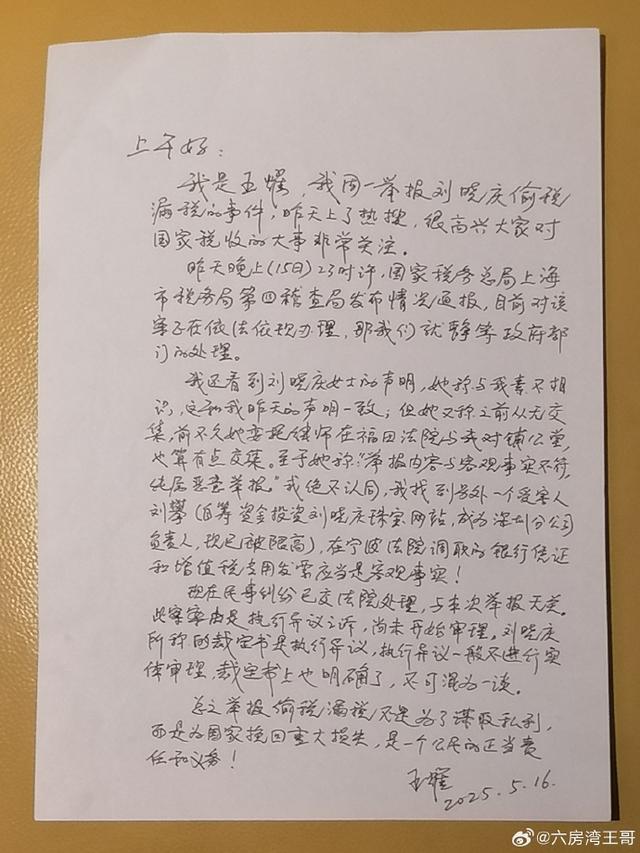 上午好：
我是王耀，我周一举报刘晓庆偷税
漏税的事件，昨天上了热搜，很高兴大家对
国家税收的大事非常关注。
昨天晚上(15日)23时许，国家税务总局上海
市税务局第四稽查局发布情况通报，目前对该
案正在依法依规办理，那我们就静等政府部
门的处理。
我还看到刘晓庆女士的声明，她称与我素不相
识，这和我昨天的声明一致；但她又称之前从无交
集，前不久她委托律师在福田法院与我对铺公堂，
也算有点交集。至于她称："举报内容与客观事实不符，
纯属恶意举报。"我绝不认同，我找到另外一个受害人
刘攀(自筹资金投资刘晓庆珠宝网站，成为深圳分公司
负责人，现已被限高)，在宁波法院调取的银行凭证
和增值税专用发票应当是客观事实！
现在民事纠纷已交法院处理，与本次举报无关。
此案案由是执行异议之诉，尚未开始审理。刘晓庆
所称的裁定书是执行异议，执行异议一般不进行实
体审理，裁定书上也明确了，不可混为一谈。
总之举报偷税漏税不是为了谋取私利，
而是为国家挽回重大损失，是一个公民的正当责
任和义务！
王耀
2025.5.16.
@六房湾王哥